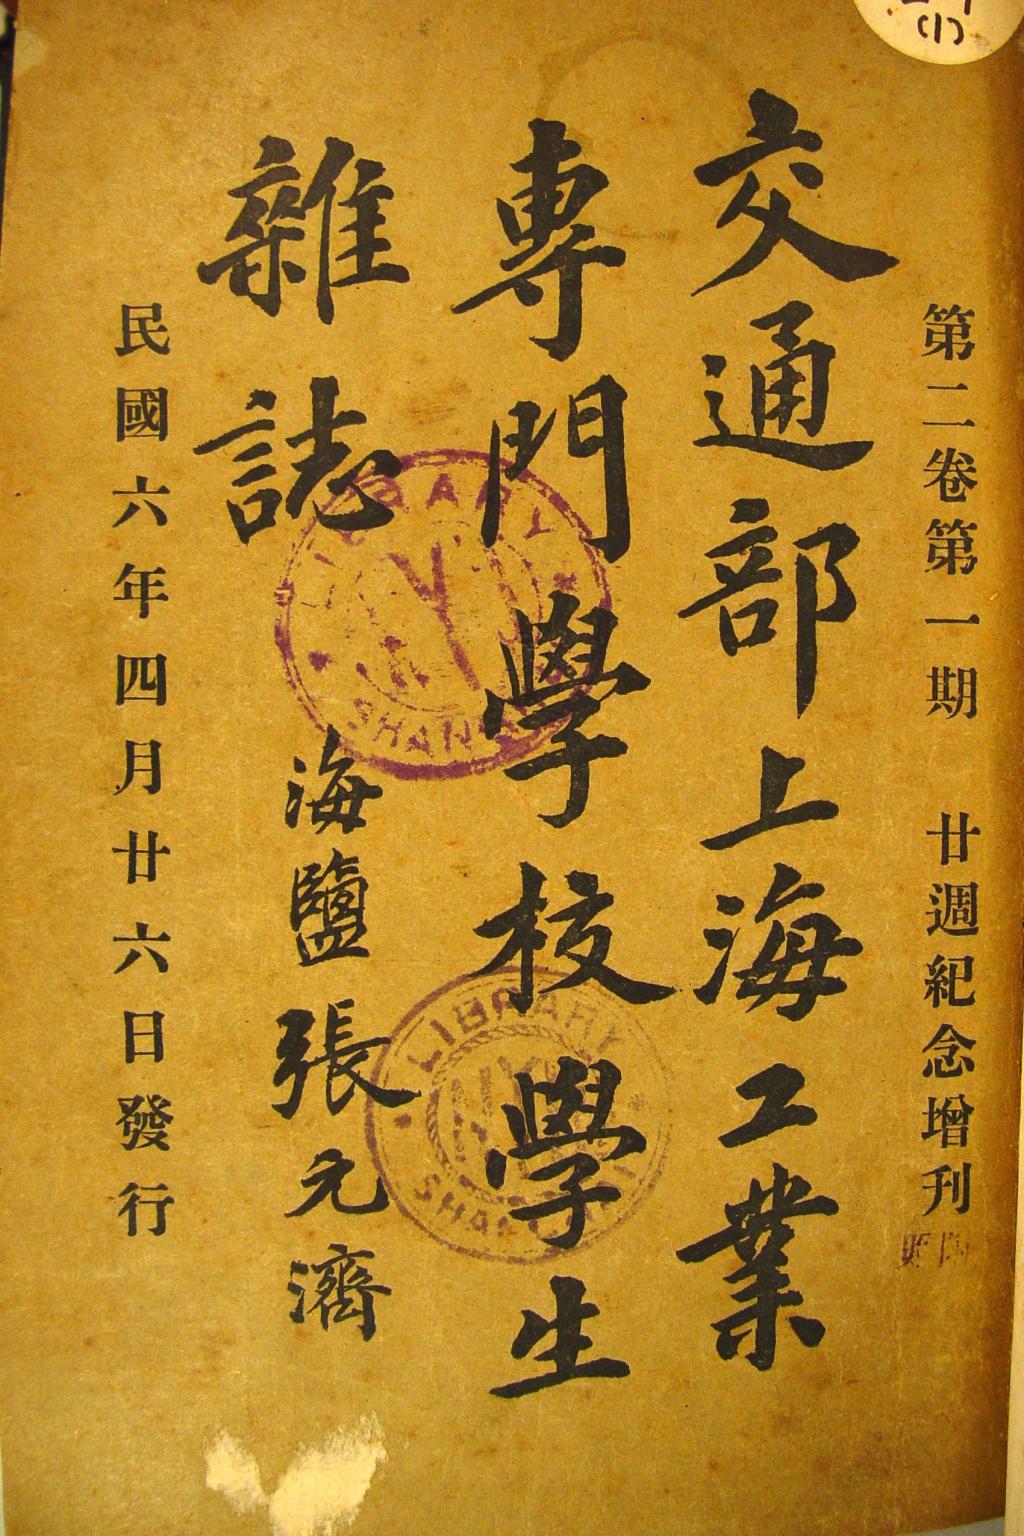 第二卷第一期 廿週紀念增刊
交通部上海工業
專門學校學生
雜誌
海鹽張元濟
民國六年四月廿六日發行
LIBRARY
SHAN
LIBRARY
SHAN
(1)